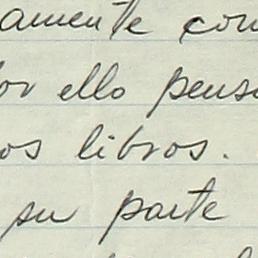 amente con
or ello pens
os libros.
su parte